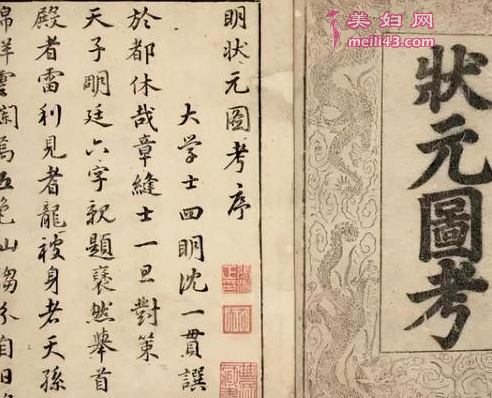 狀元圖考
明狀元圖考序
大学士四明沈一貫譔
於都休哉章縫士一旦對策
天子明廷六字親題褎然舉首
殿者雷利見者龍被身者天孫
錦祥雲
五色
美妇网
meili43.com